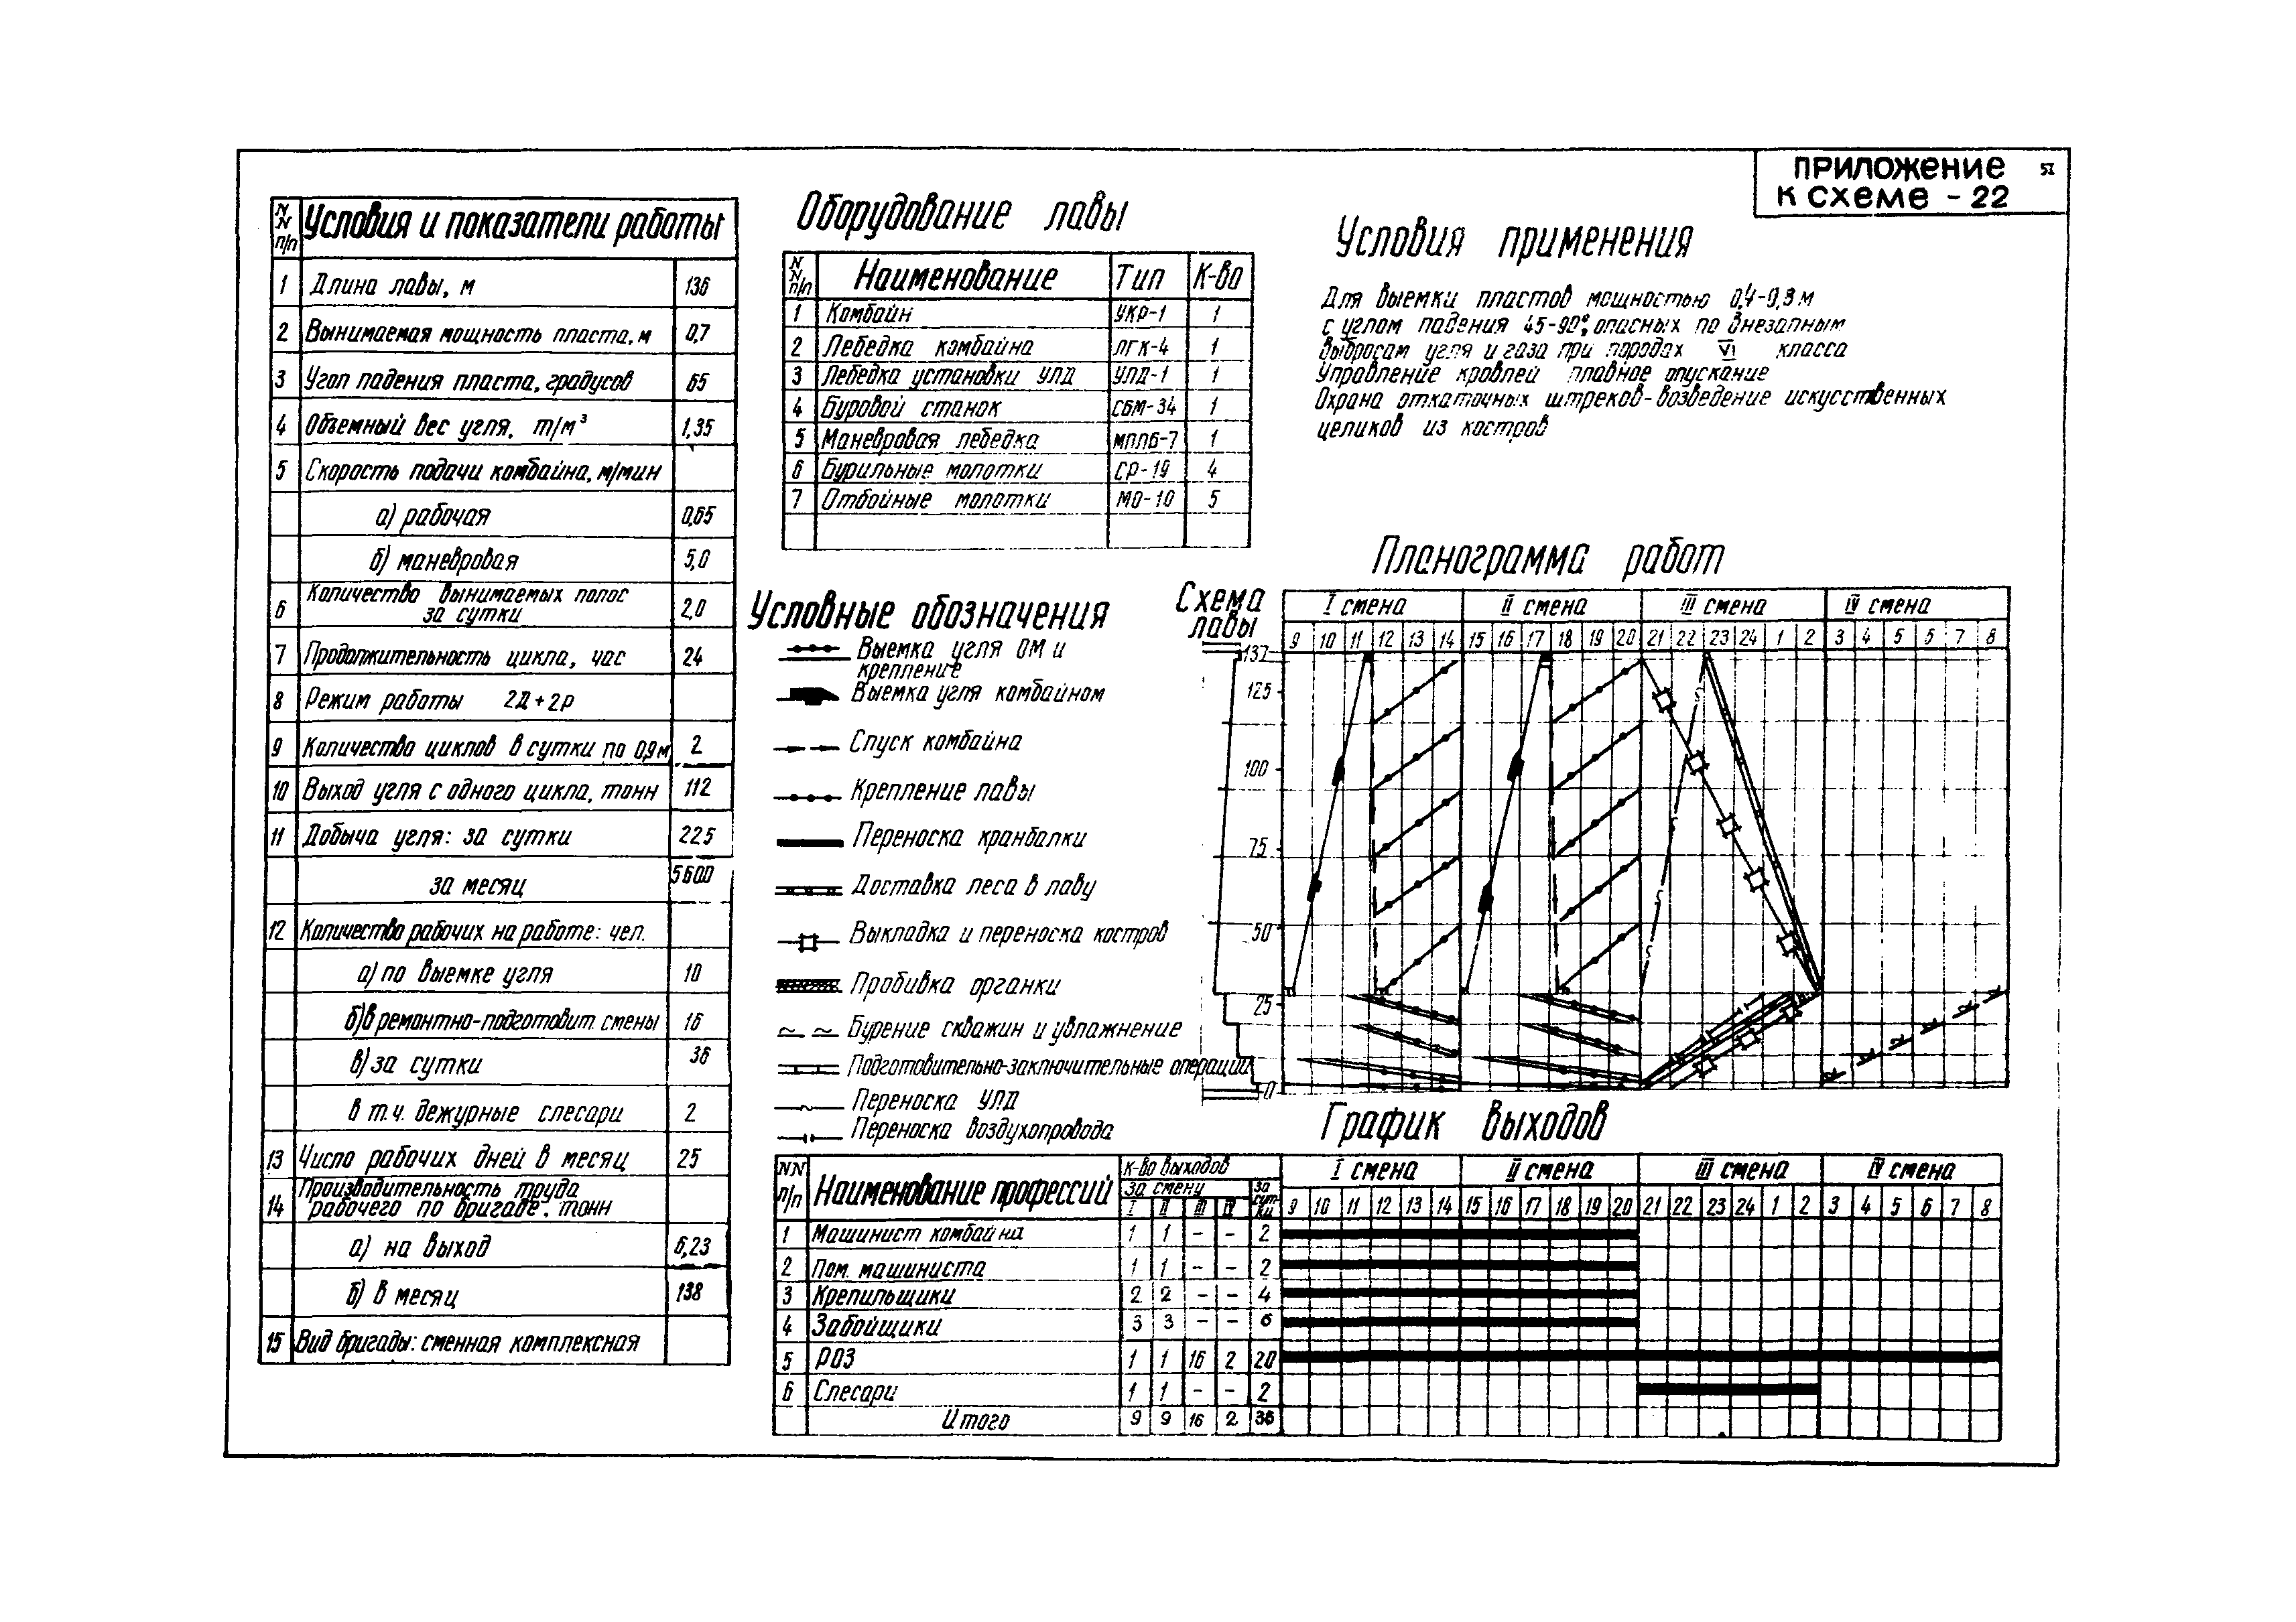 ПРИЛОЖЕНИЕ 51
К СХЕМЕ - 22
N N п/п Условия и показатели работы
1 Длина лавы, м 136
2 Вынимаемая мощность пласта, м 0,7
3 Угол падения пласта, градусов 65
4 Объемный вес угля, т/м³ 1,35
5 Скорость подачи комбайна, м/мин
а) рабочая 0,65
б) маневровая 5,0
6 Количество вынимаемых полос
за сутки 2,0
7 Продолжительность цикла, час 24
8 Режим работы 2Д+2Р
9 Количество циклов в сутки по 0,9м 2
10 Выход угля с одного цикла, тонн 112
11 Добыча угля: за сутки 225
за месяц 5600
12 Количество рабочих на работе: чел.
а) по выемке угля 10
б) в ремонтно-подготовит. смены 16
в) за сутки 36
в т.ч. дежурные слесари 2
13 Число рабочих дней в месяц 25
14 Производительность труда
рабочего по бригаде, тонн
а) на выход 6,23
б) в месяц 138
15 Вид бригады: сменная комплексная
Оборудование лавы
N N п/п Наименование Тип К-во
1 Комбайн УКР-1 1
2 Лебедка комбайна ЛГК-4 1
3 Лебедка установки УПД УПД-1 1
4 Буровой станок СБМ-34 1
5 Маневровая лебедка МПЛБ-7 1
6 Бурильные молотки СР-19 4
7 Отбойные молотки МО-10 5
Условия применения
Для выемки пластов мощностью 0,4-0,9 м
с углом падения 45-90°, опасных по внезапным
выбросам угля и газа при породах VI класса
Управление кровлей плавное опускание
Охрана откаточных штреков-возведение искусственных
целиков из костров
Условные обозначения
Выемка угля ОМ и
крепление
Выемка угля комбайном
Спуск комбайна
Крепление лавы
Переноска кранбалки
Доставка леса в лаву
Выкладка и переноска костров
Пробивка органки
Бурение скважин и увлажнение
Подготовительно-заключительные операции
Переноска УПД
Переноска воздухопровода
Планограмма работ
Схема
лавы
I смена II смена III смена IV смена
9 10 11 12 13 14 15 16 17 18 19 20 21 22 23 24 1 2 3 4 5 6 7 8
137
125
100
75
50
25
0
График выходов
NN п/п Наименование профессий К-во выходов I смена II смена III смена IV смена
за смену за сутки
I II III IV 9 10 11 12 13 14 15 16 17 18 19 20 21 22 23 24 1 2 3 4 5 6 7 8
1 Машинист комбайна 1 1 - - 2
2 Пом. машиниста 1 1 - - 2
3 Крепильщики 2 2 - - 4
4 Забойщики 3 3 - - 6
5 РОЗ 1 1 16 2 20
6 Слесари 1 1 - - 2
Итого 9 9 16 2 36